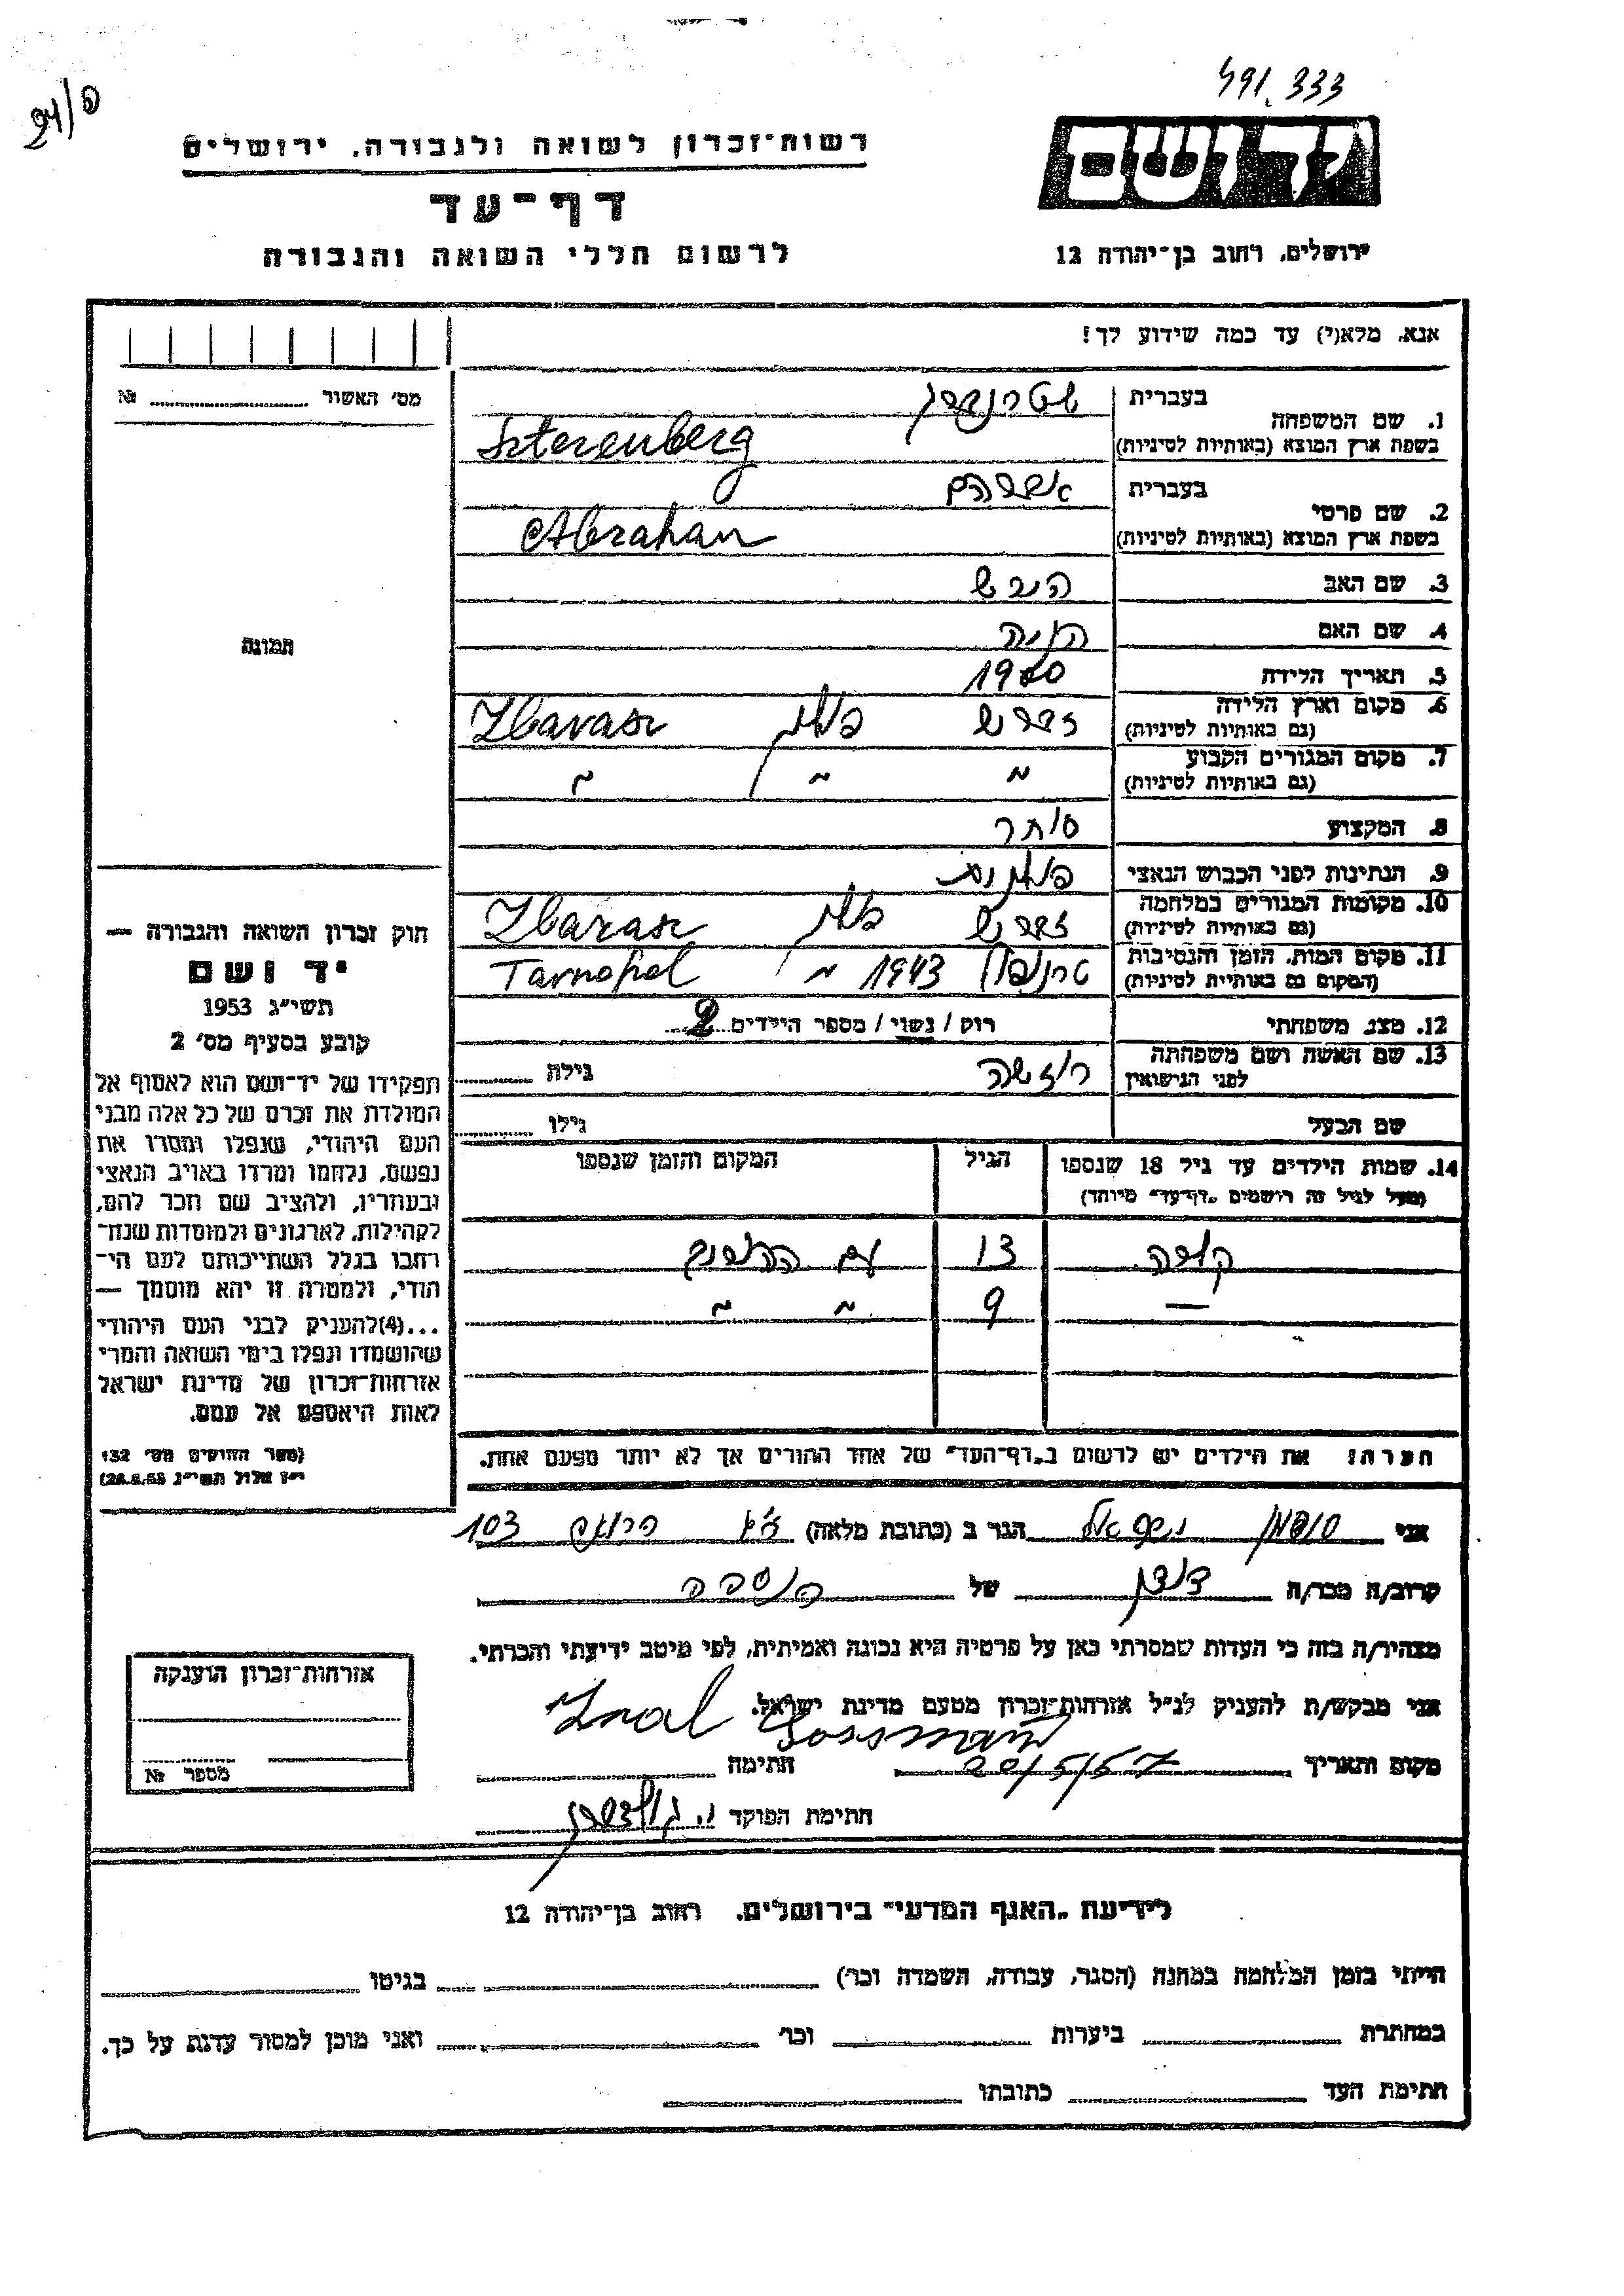 491.333
רשות־זכרון לשואה ולגבורה, ירושלים
דף־עד
לרשום חללי השואה והגבורה
יד ושם
ירושלים, רחוב בן־יהודה 12
אנא, מלא(י) עד כמה שידוע לך!
מס׳ האשור № 
1. שם המשפחה
בעברית שטרנברג
בשפת ארץ המוצא (באותיות לטיניות) Szterenberg
2. שם פרטי
בעברית אברהם
בשפת ארץ המוצא (באותיות לטיניות) Abraham
3. שם האב הירש
4. שם האם
5. תאריך הלידה 1900
6. מקום וארץ הלידה (גם באותיות לטיניות) זברש פולין Zbarasz
7. מקום המגורים הקבוע (גם באותיות לטיניות) " " "
8. המקצוע סוחר
9. הנתינות לפני הכבוש הנאצי פולנית
10. מקומות המגורים במלחמה (גם באותיות לטיניות) זברש פולין Zbarasz
11. מקום המות, הזמן והנסיבות (המקום גם באותיות לטיניות) טרנופול 1943 " Tarnopol
12. מצב משפחתי רוק / נשוי / מספר הילדים 2
13. שם האשה ושם משפחתה לפני הנישואין גילה
שם הבעל גילו
14. שמות הילדים עד גיל 18 שנספו הגיל המקום והזמן שנספו
(מעל לגיל זה רושמים „דף־עד״ מיוחד)
13 עם
— 9 " "
הערה: את הילדים יש לרשום ב„דף־העד״ של אחד ההורים אך לא יותר מפעם אחת.
תמונה
חוק זכרון השואה והגבורה —
יד ושם
תשי״ג 1953
קובע בסעיף מס׳ 2
תפקידו של יד־ושם הוא לאסוף אל
המולדת את זכרם של כל אלה מבני
העם היהודי, שנפלו ומסרו את
נפשם, נלחמו ומרדו באויב הנאצי
ובעוזריו, ולהציב שם וזכר להם,
לקהילות, לארגונים ולמוסדות שנח־
רבו בגלל השתייכותם לעם הי־
הודי, ולמטרה זו יהא מוסמך —
...(4)להעניק לבני העם היהודי
שהושמדו ונפלו בימי השואה והמרי
אזרחות־זכרון של מדינת ישראל
לאות היאספם אל עמם.
(ספר החוקים מס׳ 132
י״ז אלול תשי״ג 28.8.53)
אני זוסמן ישראל הגר ב (כתובת מלאה) 103
קרוב/ה מכר/ה דודן של הנספה
מצהיר/ה בזה כי העדות שמסרתי כאן על פרטיה היא נכונה ואמיתית, לפי מיטב ידיעתי והכרתי.
אני מבקש/ת להעניק לנ״ל אזרחות־זכרון מטעם מדינת ישראל.
מקום ותאריך 20/5/57 חתימה
חתימת הפוקד
אזרחות־זכרון הוענקה
מספר №
לידיעת „האגף המדעי״ בירושלים, רחוב בן־יהודה 12
הייתי בזמן המלחמה במחנה (הסגר, עבודה, השמדה וכו׳) בגיטו
במחתרת ביערות וכו׳ ואני מוכן למסור עדות על כך.
חתימת העד כתובתו